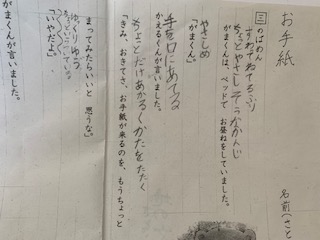 お手紙
名前(さと
三のばめん
すねてねてるふり
ちょっとやさしそうなかんじ
がまくんは、ベッドで お昼ねをしていました。
やさしめ
「がまくん。」
手を口にあてる
かえるくんが言いました。
ちょっとだけあかるくかたをたたく
「きみ、おきてさ、お手紙が来るのを、もうちょっと
まってみたらいいと 思うな。」
ゆっくり
「いやだよ。」
がまくんが言いました。